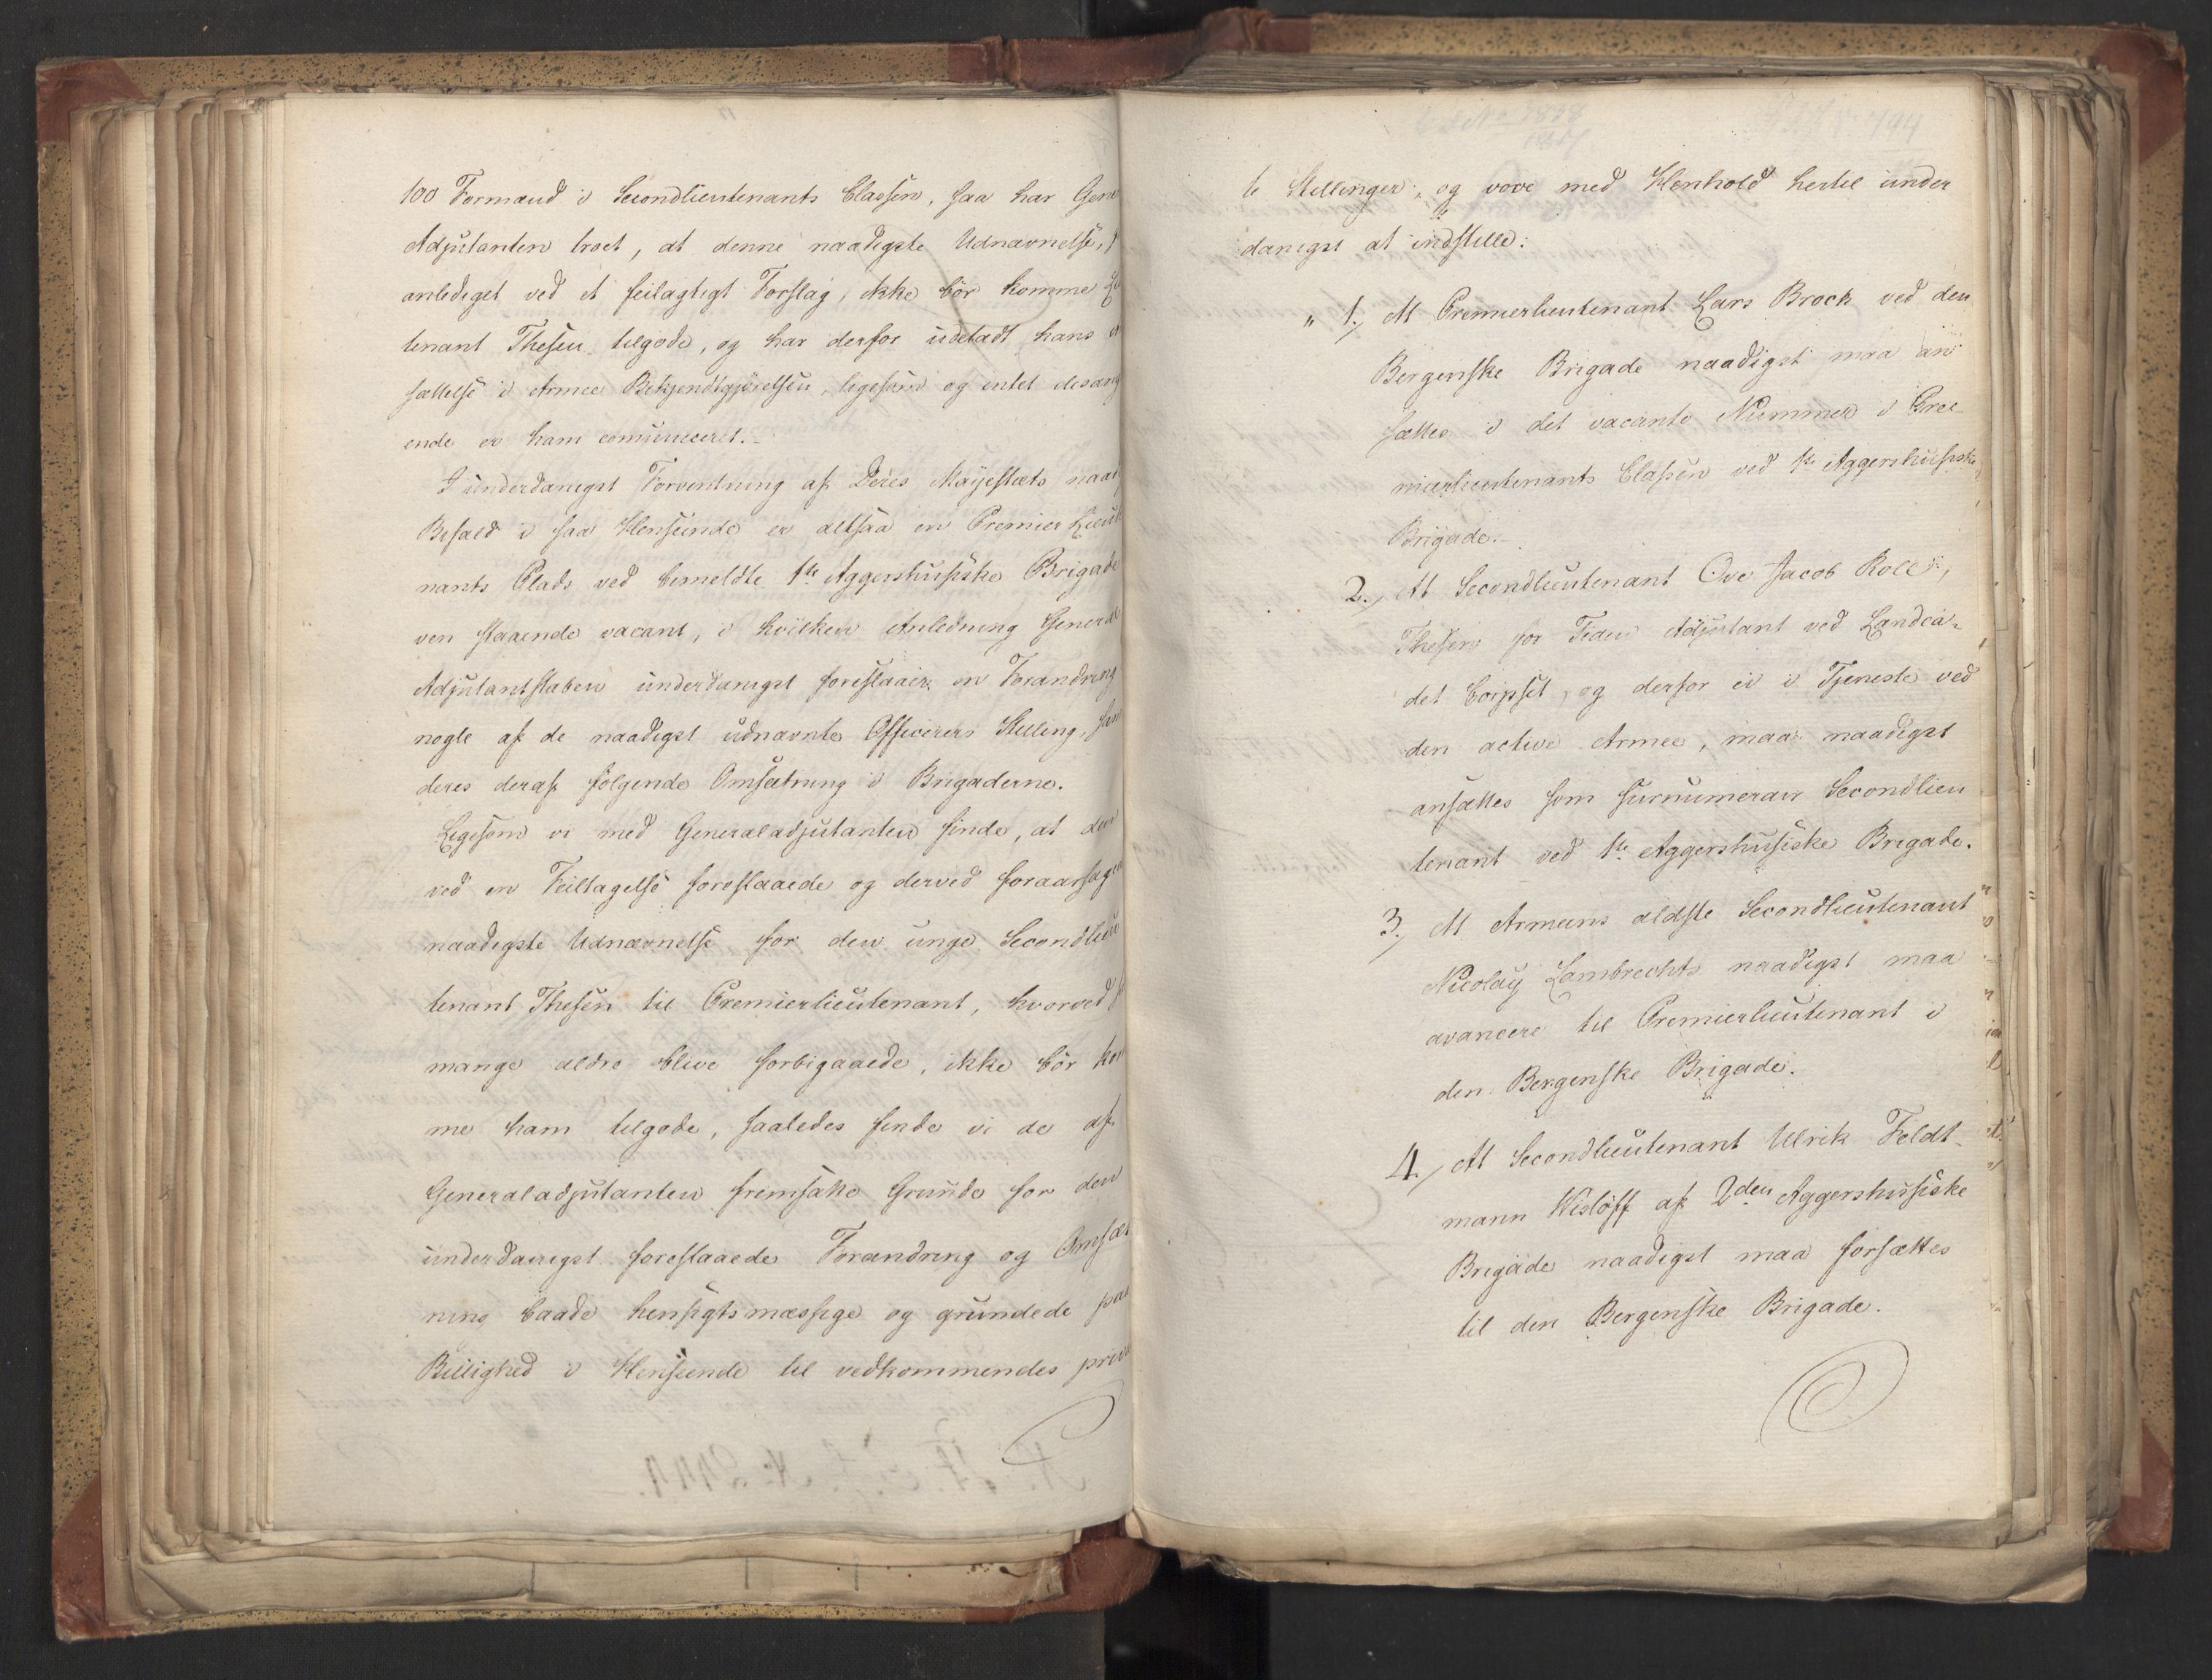 100 Formænd i Secondlieutenants Classen, saa har Gene
Adjutanten troet, at denne naadigste Udnævnelse,
anlediget ved et feilagtigt Forslag, ikke bör komme
tenant Thesen tilgode, og har derfor udeladt hans
sættelse i Armee Bekjendtgjörelsen, ligesom og intet desang
ende er ham comuniceret.
I underdanigst Forventning af Deres Majestæts naad
Befald i saa Henseende er altsaa en Premier Lieut
nants Plads ved bemeldte 1ste Aggershusiske Brigade
ven staaende vacant, i hvilken Anledning General
Adjutantstaben underdanigst foreslaaer en Forandring
nogle af de naadigst udnævnte Officerers Stilling,
deres deraf fölgende Omsætning i Brigaderne.
Ligesom vi med Generaladjutanten finde, at den
ved en Feiltagelse foreslaaede og derved foraarsage
naadigste Udnævnelse for den unge Secondlieu
tenant Thesen til Premierlieutenant, hvorved
mange ældre blive forbigaaede, ikke bör kom
me ham tilgode, saaledes finde vi de af
Generaladjutanten fremsatte Grunde for den
underdanigst foreslaaede Forandring og Omsæt
ning baade hensigtsmæssige og grundede paa
Billighed i Henseende til vedkommendes priva
te Stillinger, og vove med Henhold hertil under
danigst at indstille:
" 1., At Premierlieutenant Lars Brock ved den
Bergenske Brigade naadigst maa an
sættes i det vacante Nummer i Pree
mierlieutenants Classen ved 1ste Aggershusiske
Brigade.
2., At Secondlieutenant Ove Jacob Roll
Thesen for Tiden Adjutant ved Landca-
det Corpset, og derfor ei i Tjeneste ved
den active Armee, maa naadigst
ansættes som surnumerair Secondlieu
tenant ved 1ste Aggershusiske Brigade.
3., At Armeens ældste Secondlieutenant
Nicolay Lambrechts naadigst maa
avancere til Premierlieutenant i
den Bergenske Brigade.
4., At Secondlieutenant Ulrik Feldt-
mann Wislöff af 2den Aggershusiske
Brigade naadigst maa forsættes
til den Bergenske Brigade.